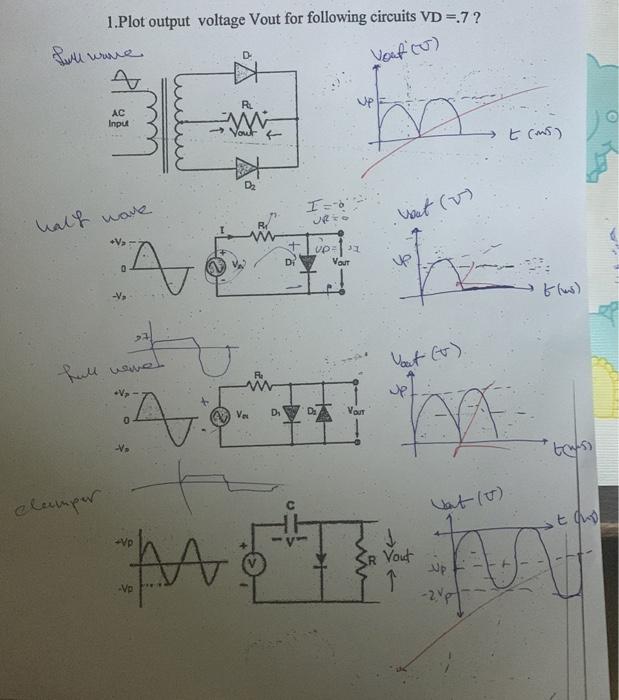 1.Plot output voltage Vout for following circuits VD =.7 ?
full wave
AC
Input
D1
RL
Vout
D2
Vout (V)
Vp
t (ms)
half wave
+Vp
0
-Vp
I
R1
Vin
D1
VOUT
I = 0
VR = 0
Vout (V)
Vp
t (ms)
.7
full wave
+Vp
0
-Vp
R1
VIN
D1
D2
VOUT
Vout (V)
Vp
t (ms)
clamper
+Vp
-Vp
C
- V -
V
R
Vout
Vout (V)
t (ms)
-Vp
-2Vp